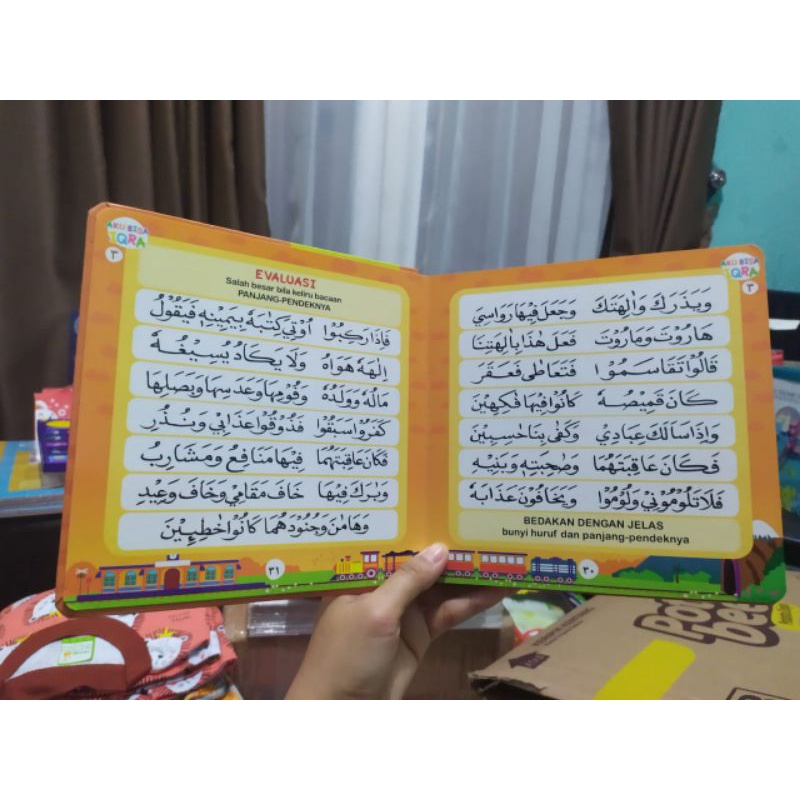 AKU BISA
IQRA
٣
وَيَذَرَكَ وَاٰلِهَتَكَ وَجَعَلَ فِيْهَا رَوَاسِيَ
هَارُوْتَ وَمَارُوْتَ فَعَلَ هٰذَا بِاٰلِهَتِنَا
قَالُوْا تَقَاسَمُوْا فَتَعَاطٰى فَعَقَرَ
كَانَ قَمِيْصُهٗ كَانُوْا فِيْهَا فٰكِهِيْنَ
وَاِذَا سَاَلَكَ عِبَادِيْ وَكَفٰى بِنَا حٰسِبِيْنَ
فَكَانَ عَاقِبَتَهُمَا وَصَاحِبَتِهٖ وَبَنِيْهِ
فَلَا تَلُوْمُوْنِيْ وَلُوْمُوْا وَيَخَافُوْنَ عَذَابَهٗ
BEDAKAN DENGAN JELAS
bunyi huruf dan panjang-pendeknya
٣٠
AKU BISA
IQRA
٣
EVALUASI
Salah besar bila keliru bacaan
PANJANG-PENDEKNYA
فَاِذَا رَكِبُوْا اُوْتِيَ كِتٰبَهٗ بِيَمِيْنِهٖ فَيَقُوْلُ
اِلٰهَهٗ هَوَاهُ وَلَا يَكَادُ يُسِيْغُهٗ
مَالُهٗ وَوَلَدُهٗ وَفُوْمِهَا وَعَدَسِهَا وَبَصَلِهَا
كَفَرُوْا سَبَقُوْا فَذُوْقُوْا عَذَابِيْ وَنُذُرِ
فَكَانَ عَاقِبَتُهُمَا فِيْهَا مَنَافِعُ وَمَشَارِبُ
وَبٰرَكَ فِيْهَا خَافَ مَقَامِيْ وَخَافَ وَعِيْدِ
وَهَامٰنَ وَجُنُوْدَهُمَا كَانُوْا خٰطِـِٔيْنَ
٣١